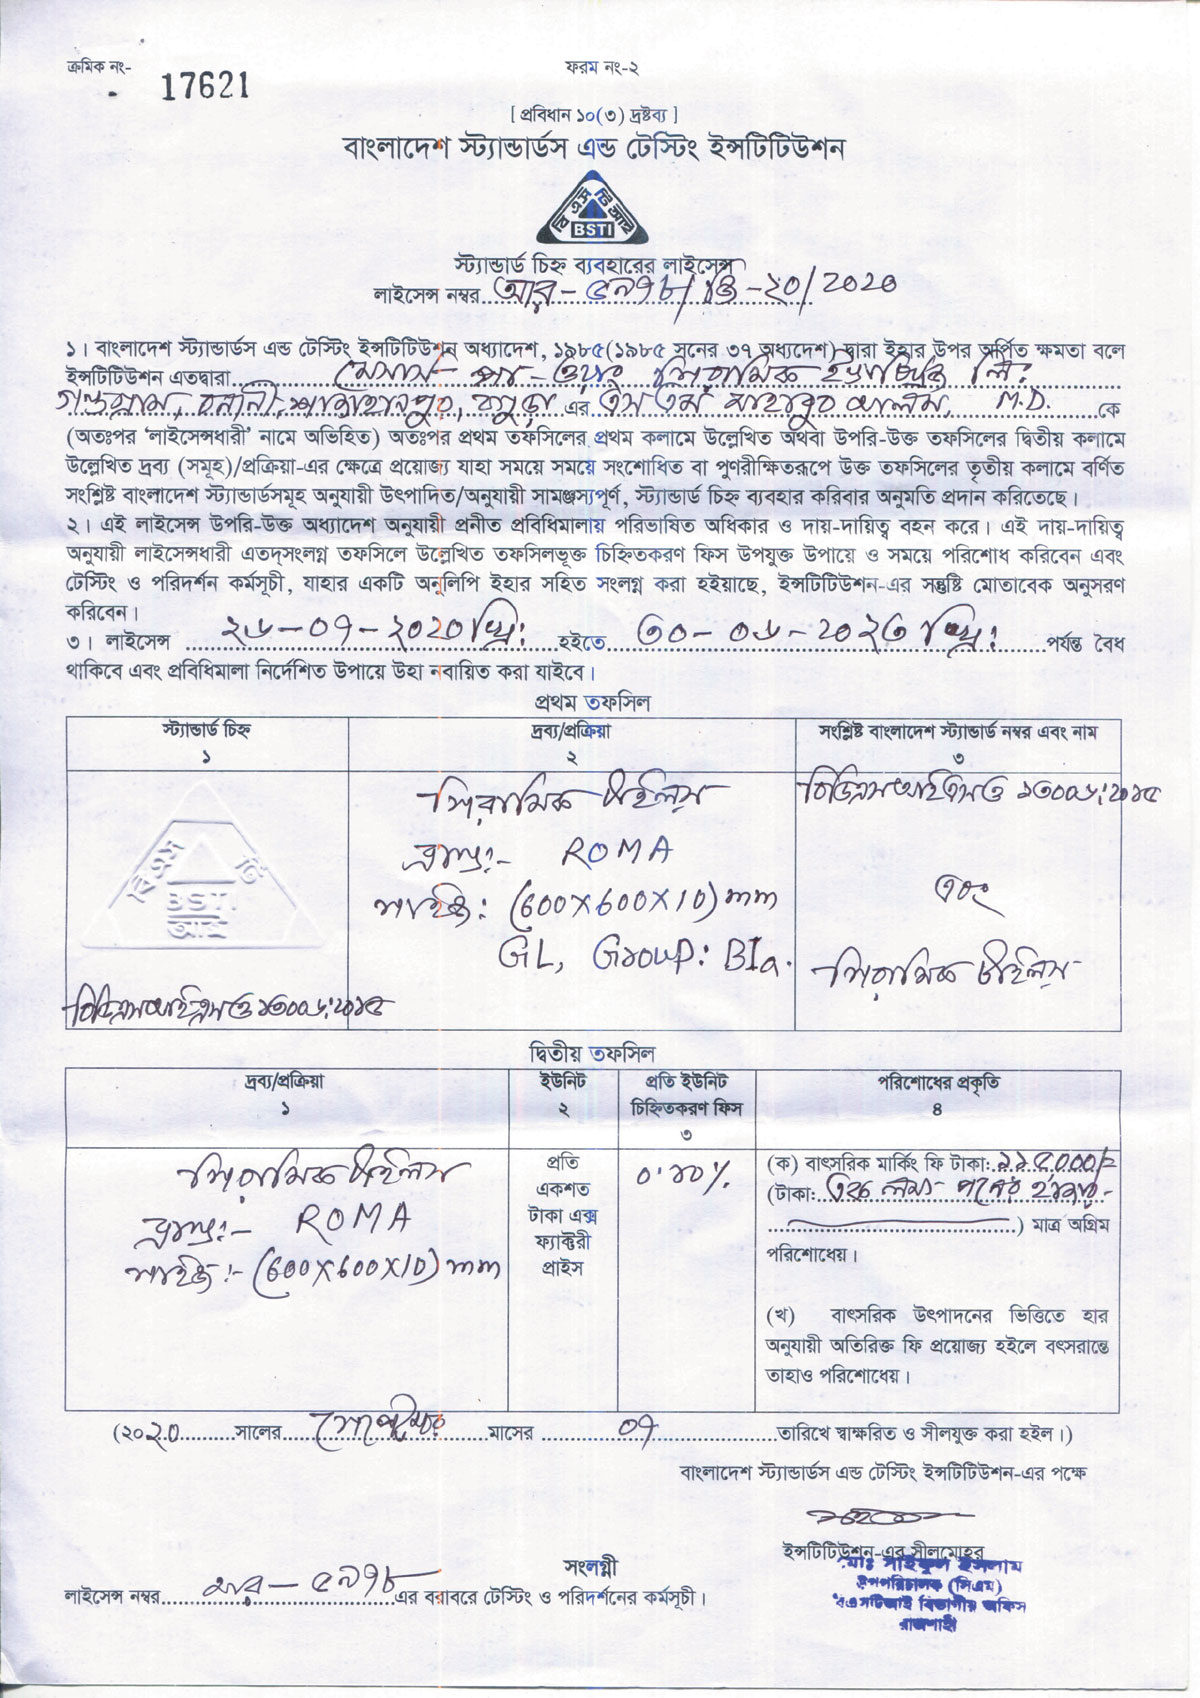 ক্রমিক নং-
17621
ফরম নং-২
[ প্রবিধান ১০(৩) দ্রষ্টব্য ]
বাংলাদেশ স্ট্যান্ডার্ডস এন্ড টেস্টিং ইন্সটিটিউশন
বি এস টি আই
BSTI
স্ট্যান্ডার্ড চিহ্ন ব্যবহারের লাইসেন্স
লাইসেন্স নম্বর
১। বাংলাদেশ স্ট্যান্ডার্ডস এন্ড টেস্টিং ইন্সটিটিউশন অধ্যাদেশ, ১৯৮৫(১৯৮৫ সনের ৩৭ অধ্যদেশ) দ্বারা ইহার উপর অর্পিত ক্ষমতা বলে
ইন্সটিটিউশন এতদ্বারা মেসার্স লিঃ
বনানী, শাজাহানপুর, বগুড়া এর এস এম মাহাবুব আলম, M.D. কে
(অতঃপর ‘লাইসেন্সধারী’ নামে অভিহিত) অতঃপর প্রথম তফসিলের প্রথম কলামে উল্লেখিত অথবা উপরি-উক্ত তফসিলের দ্বিতীয় কলামে
উল্লেখিত দ্রব্য (সমূহ)/প্রক্রিয়া-এর ক্ষেত্রে প্রয়োজ্য যাহা সময়ে সময়ে সংশোধিত বা পুণরীক্ষিতরূপে উক্ত তফসিলের তৃতীয় কলামে বর্ণিত
সংশ্লিষ্ট বাংলাদেশ স্ট্যান্ডার্ডসমূহ অনুযায়ী উৎপাদিত/অনুযায়ী সামঞ্জস্যপূর্ণ, স্ট্যান্ডার্ড চিহ্ন ব্যবহার করিবার অনুমতি প্রদান করিতেছে।
২। এই লাইসেন্স উপরি-উক্ত অধ্যাদেশ অনুযায়ী প্রনীত প্রবিধিমালায় পরিভাষিত অধিকার ও দায়-দায়িত্ব বহন করে। এই দায়-দায়িত্ব
অনুযায়ী লাইসেন্সধারী এতদ্‌সংলগ্ন তফসিলে উল্লেখিত তফসিলভূক্ত চিহ্নিতকরণ ফিস উপযুক্ত উপায়ে ও সময়ে পরিশোধ করিবেন এবং
টেস্টিং ও পরিদর্শন কর্মসূচী, যাহার একটি অনুলিপি ইহার সহিত সংলগ্ন করা হইয়াছে, ইন্সটিটিউশন-এর সন্তুষ্টি মোতাবেক অনুসরণ
করিবেন।
৩। লাইসেন্স ২৬-০৭-২০২০খ্রিঃ হইতে ৩০-০৬-২০২৩ খ্রিঃ পর্যন্ত বৈধ
থাকিবে এবং প্রবিধিমালা নির্দেশিত উপায়ে উহা নবায়িত করা যাইবে।
প্রথম তফসিল
স্ট্যান্ডার্ড চিহ্ন
১
দ্রব্য/প্রক্রিয়া
২
সংশ্লিষ্ট বাংলাদেশ স্ট্যান্ডার্ড নম্বর এবং নাম
৩
বি এস টি
BSTI
আই
বিডিএসআইএসও ১৩০০৬:২০১৫
সিরামিক টাইলস
ব্রান্ডঃ- ROMA
সাইজ: (600X600X10)mm
GL, Group: BIa.
বিডিএসআইএসও ১৩০০৬:২০১৫
এবং
সিরামিক টাইলস
দ্বিতীয় তফসিল
দ্রব্য/প্রক্রিয়া
১
ইউনিট
২
প্রতি ইউনিট
চিহ্নিতকরণ ফিস
৩
পরিশোধের প্রকৃতি
৪
সিরামিক টাইলস
ব্রান্ডঃ- ROMA
সাইজ:- (600X600X10)mm
প্রতি
একশত
টাকা এক্স
ফ্যাক্টরী
প্রাইস
০.১০%
(ক) বাৎসরিক মার্কিং ফি টাকা: ১১৫০০০/=
(টাকা: এক লক্ষ পনের হাজার-
) মাত্র অগ্রিম
পরিশোধেয়।
(খ) বাৎসরিক উৎপাদনের ভিত্তিতে হার
অনুযায়ী অতিরিক্ত ফি প্রয়োজ্য হইলে বৎসরান্তে
তাহাও পরিশোধেয়।
(২০২০ সালের সেপ্টেম্বর মাসের ০৭ তারিখে স্বাক্ষরিত ও সীলযুক্ত করা হইল।)
বাংলাদেশ স্ট্যান্ডার্ডস এন্ড টেস্টিং ইন্সটিটিউশন-এর পক্ষে
ইন্সটিটিউশন-এর সীলমোহর
মোঃ সাইফুল ইসলাম
উপপরিচালক (সিএম)
বিএসটিআই বিভাগীয় অফিস
রাজশাহী
সংলগ্নী
লাইসেন্স নম্বর এর বরাবরে টেস্টিং ও পরিদর্শনের কর্মসূচী।